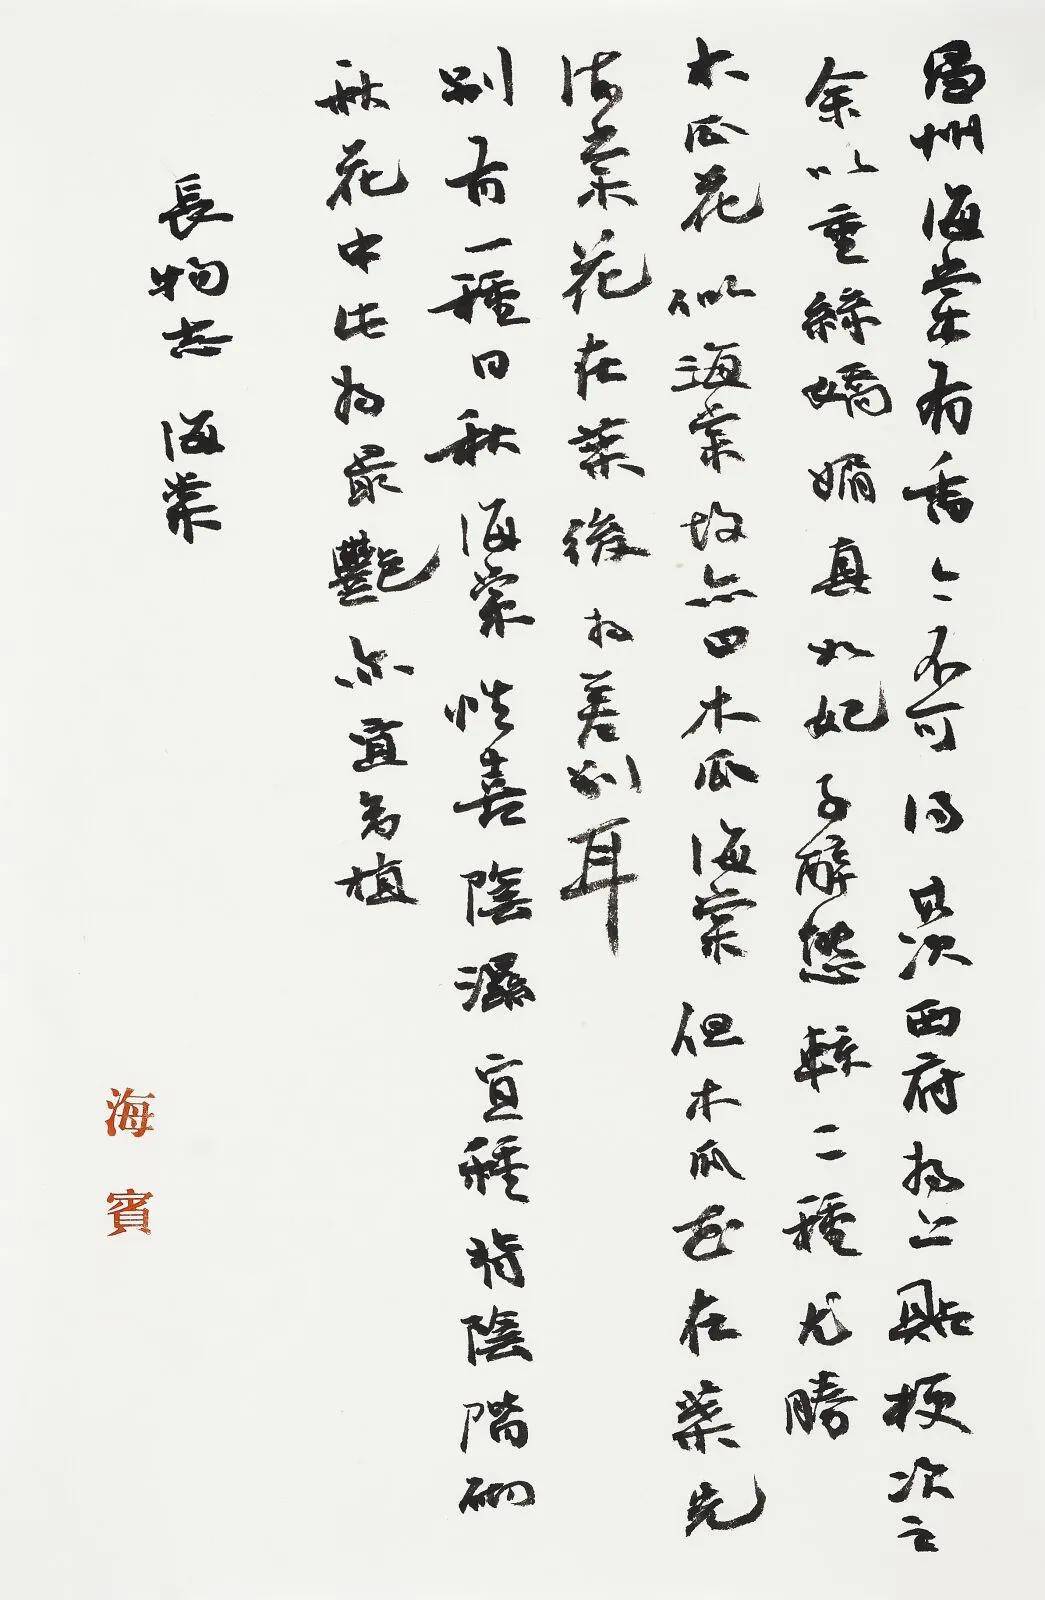 昌州海棠有香今不可得其次西府為上貼梗次之
余以垂絲嬌媚真如妃子醉態較二種尤勝
木瓜花似海棠故亦曰木瓜海棠但木瓜花在葉先
海棠花在葉後為差別耳
別有一種曰秋海棠性喜陰濕宜種背陰階砌
秋花中此為最艷亦宜多植
長物志 海棠
海賓